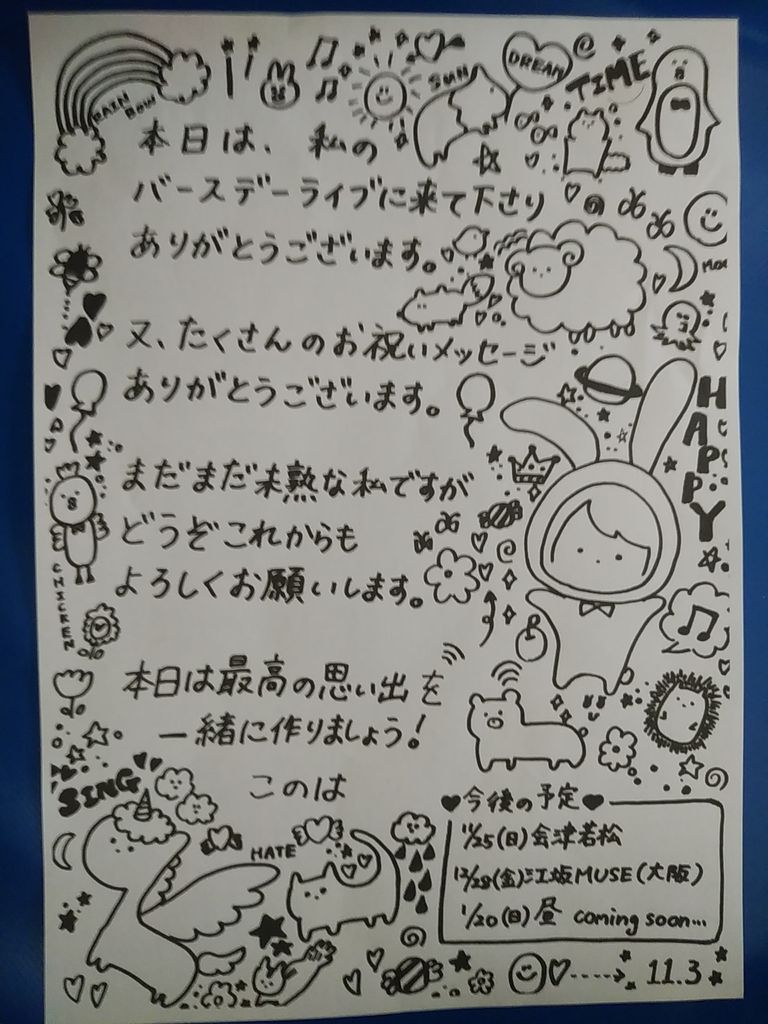 RAIN BOW
SUN
DREAM
TIME
本日は、私の
バースデーライブに来て下さり
ありがとうございます。
又、たくさんのお祝いメッセージ
ありがとうございます。
HAPPY
まだまだ未熟な私ですが
どうぞこれからも
よろしくお願いします。
CHICKEN
本日は最高の思い出を
一緒に作りましょう!
このは
SING
HATE
♥今後の予定♥
11/25(日)会津若松
12/28(金)江坂MUSE(大阪)
1/20(日)昼 coming soon...
11.3